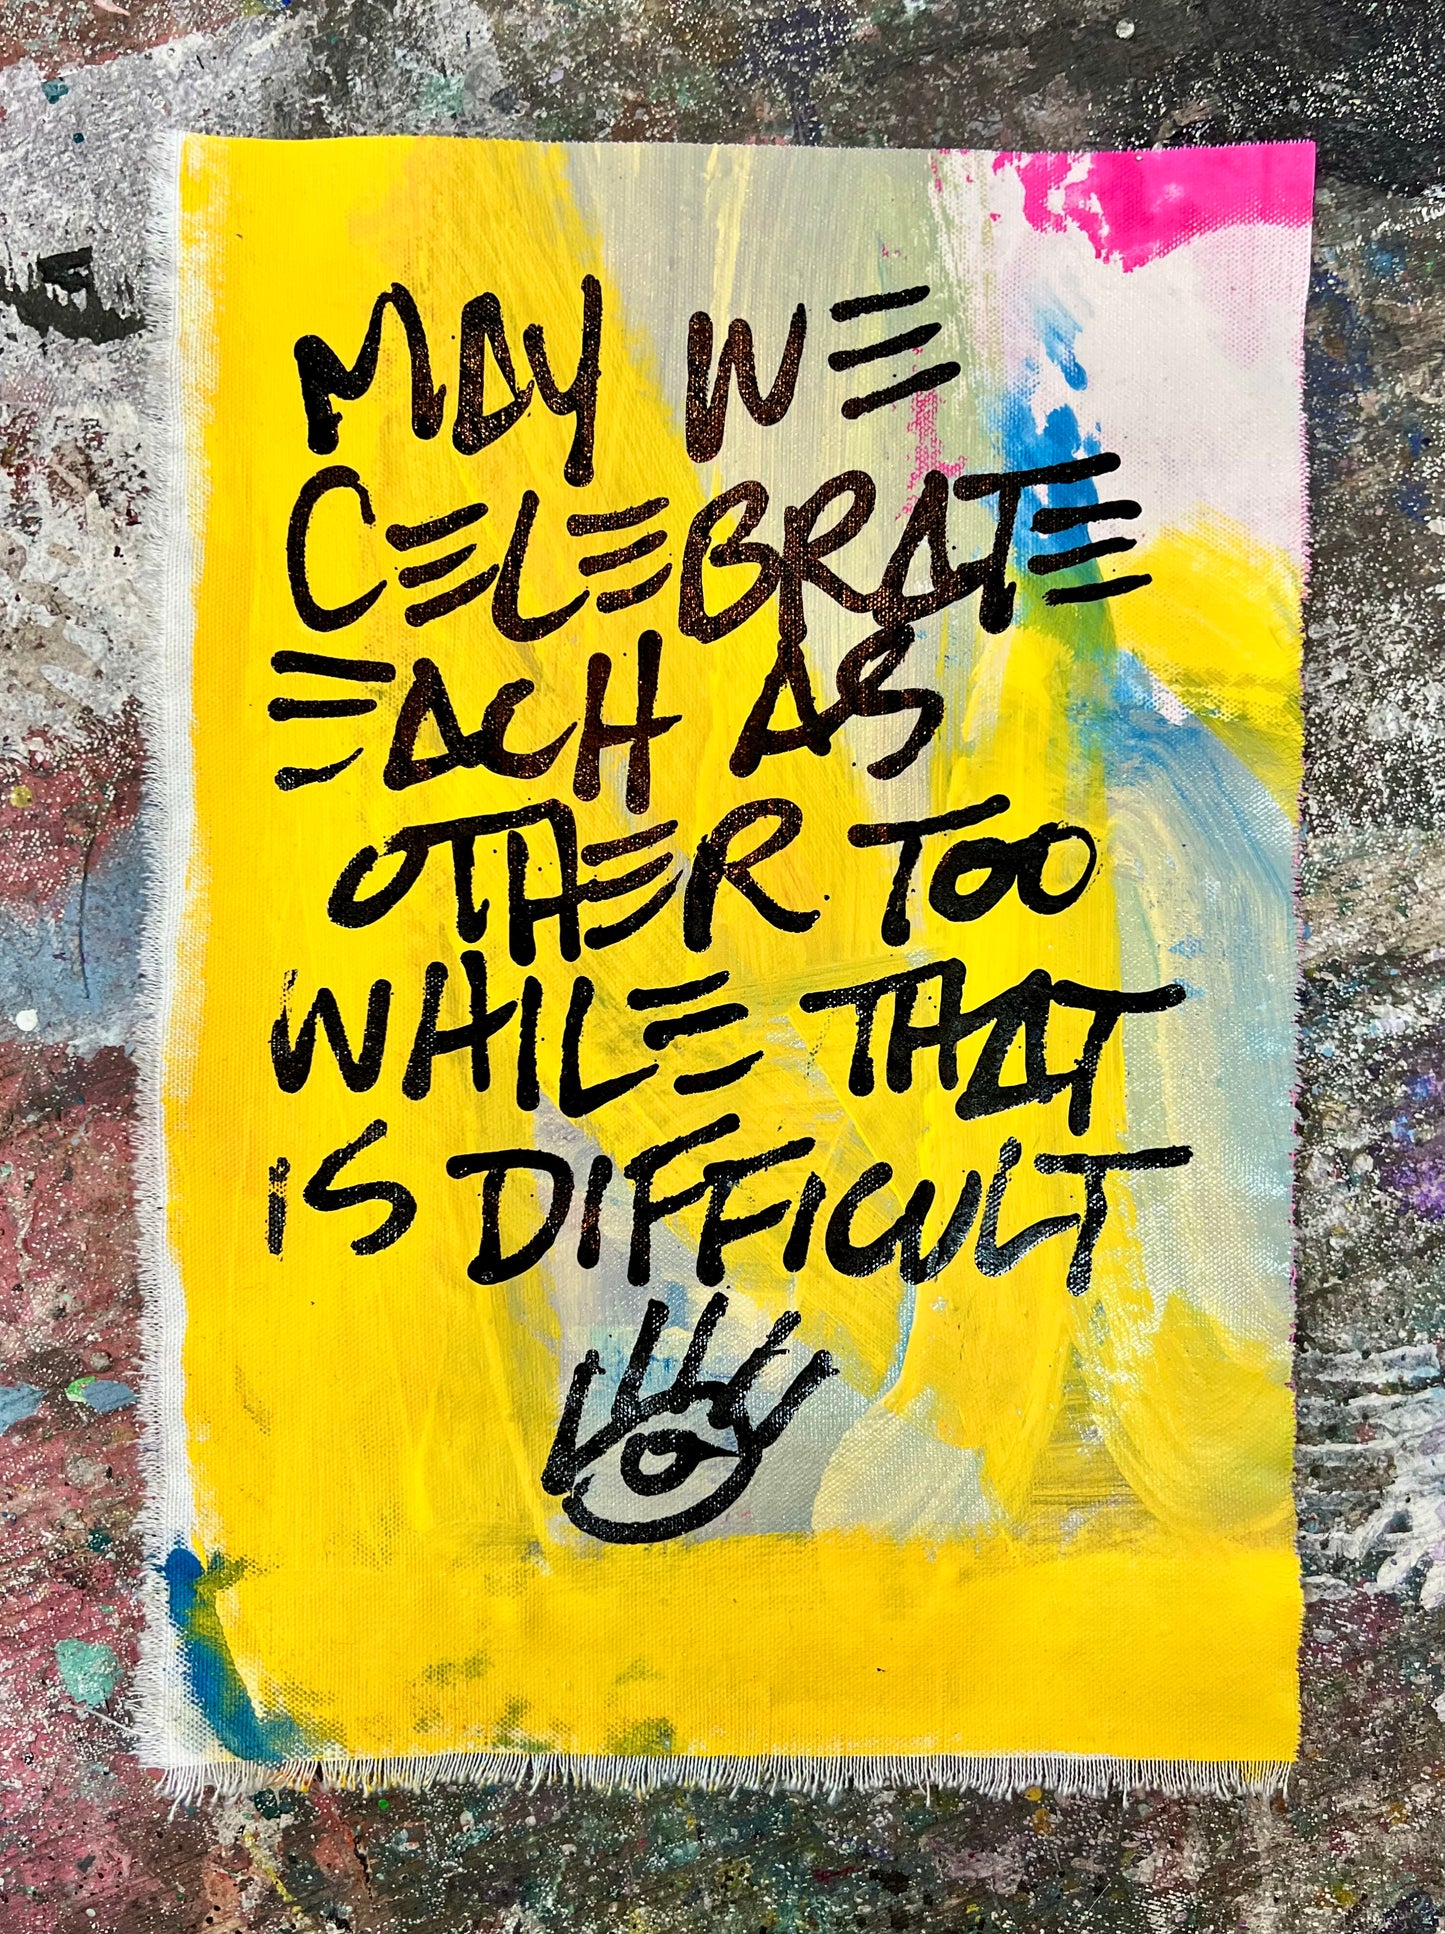 MAY WE
CELEBRATE
EACH AS
OTHER TOO
WHILE THAT
IS DIFFICULT